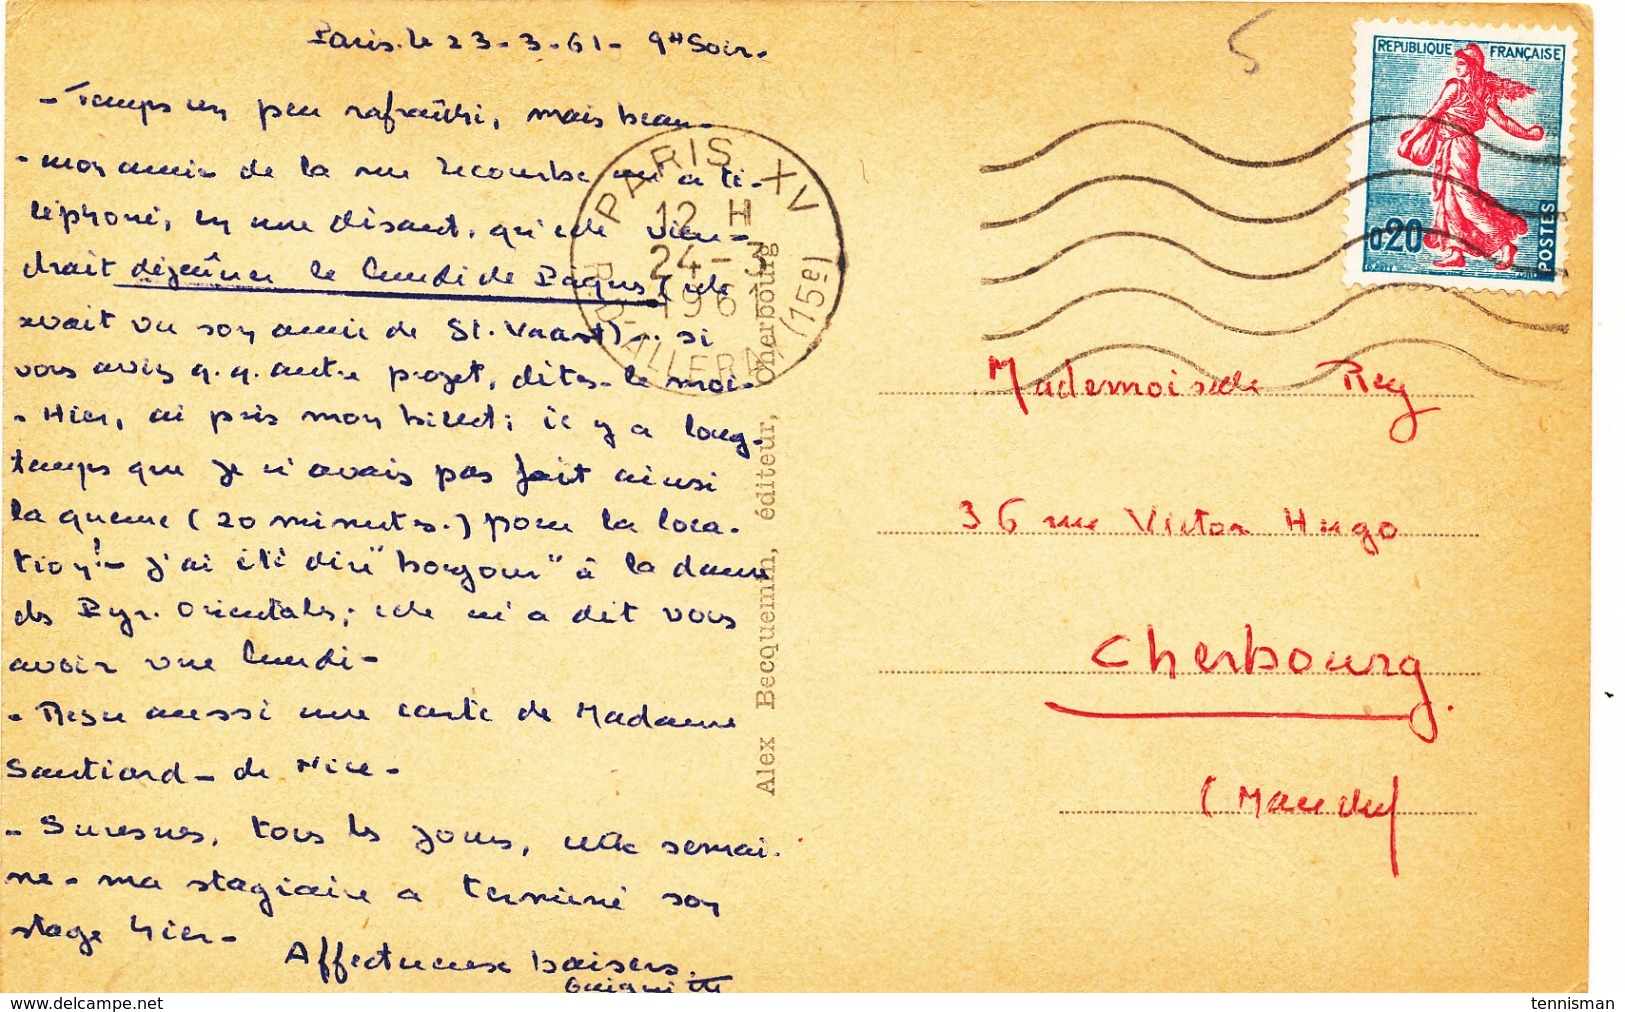 Paris. le 23-3-61- 9H Soir.
- Temps un peu rafraîchi, mais beau-
- mon amie de la rue Lecourbe m'a té-
léphoné, en me disant, qu'elle vien-
drait déjeûner le lundi de Pâques (elle
avait vu son amie de St. Vaast)-. si
vous aviez q.q. autre projet, dites-le moi-
- Hier, ai pris mon billet; il y a long-
temps que je n'avais pas fait ainsi
la queue (20 minutes.) pour la loca-
tion!- j'ai été dire "bonjour" à la dame
des Pyr. Orientales; elle m'a dit vous
avoir vue lundi-
- Reçu aussi une carte de Madame
Santiard- de Nice-
- Suresnes, tous les jours, cette semai-
ne- ma stagiaire a terminé son
stage hier-
Affectueux baisers.
Guiguitte
PARIS XV
12 H
24-3
1961
R. D'ALLERAY (15e)
Alex Becquemin, éditeur, Cherbourg
5
REPUBLIQUE FRANÇAISE
0,20
POSTES
Mademoiselle Rey
36 rue Victor Hugo
Cherbourg.
(Manche)
www.delcampe.net
tennisman